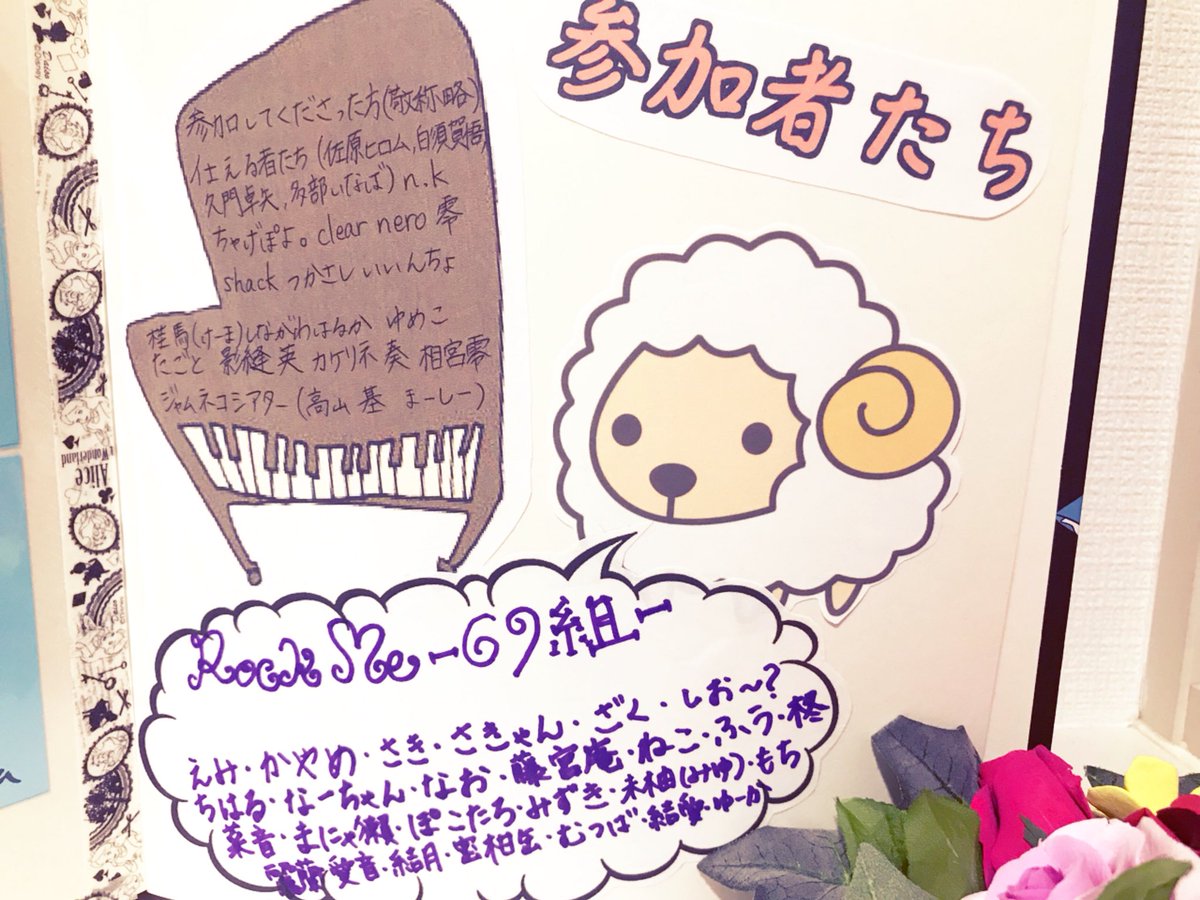 参加者たち
参加してくださった方(敬称略)
仕える者たち(佐原ヒロム,白須賀悟
久門卓矢,多部いなば) n.k
ちゃげぽよ。clear nero 零
shack つかさしいいんちょ
桂馬(けーま)しながわはるか ゆめこ
たごと 影縫英 カケリネ 奏 相宮零
ジャムネコシアター(高山 基 まーしー)
Rock Me -69組-
えみ・かやめ・さき・さきゃん・ざく・しお～?
ちはる・なーちゃん・なお・藤宮庵・ねこ・ふう・柊
葉音・まにゃ獺・ぽこたろ・みずき・未柚(みゆ)・もち
愛音・結月・相生・むつば・結愛・ゆーか
Alice
Wonderland
©Disney